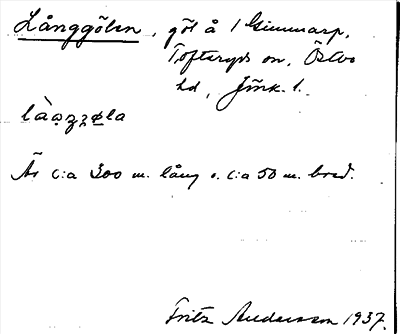 Långgölen, göl å 1 Gimmarp,
Toftaryds sn, Östbo
hd, Jönk. l.
Är c:a 300 m. lång o. c:a 50 m. bred.
Fritz Andersson 1937.